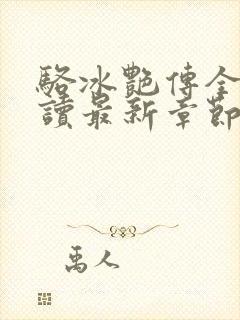 駱冰艷傳全
讀最新章節
禹人